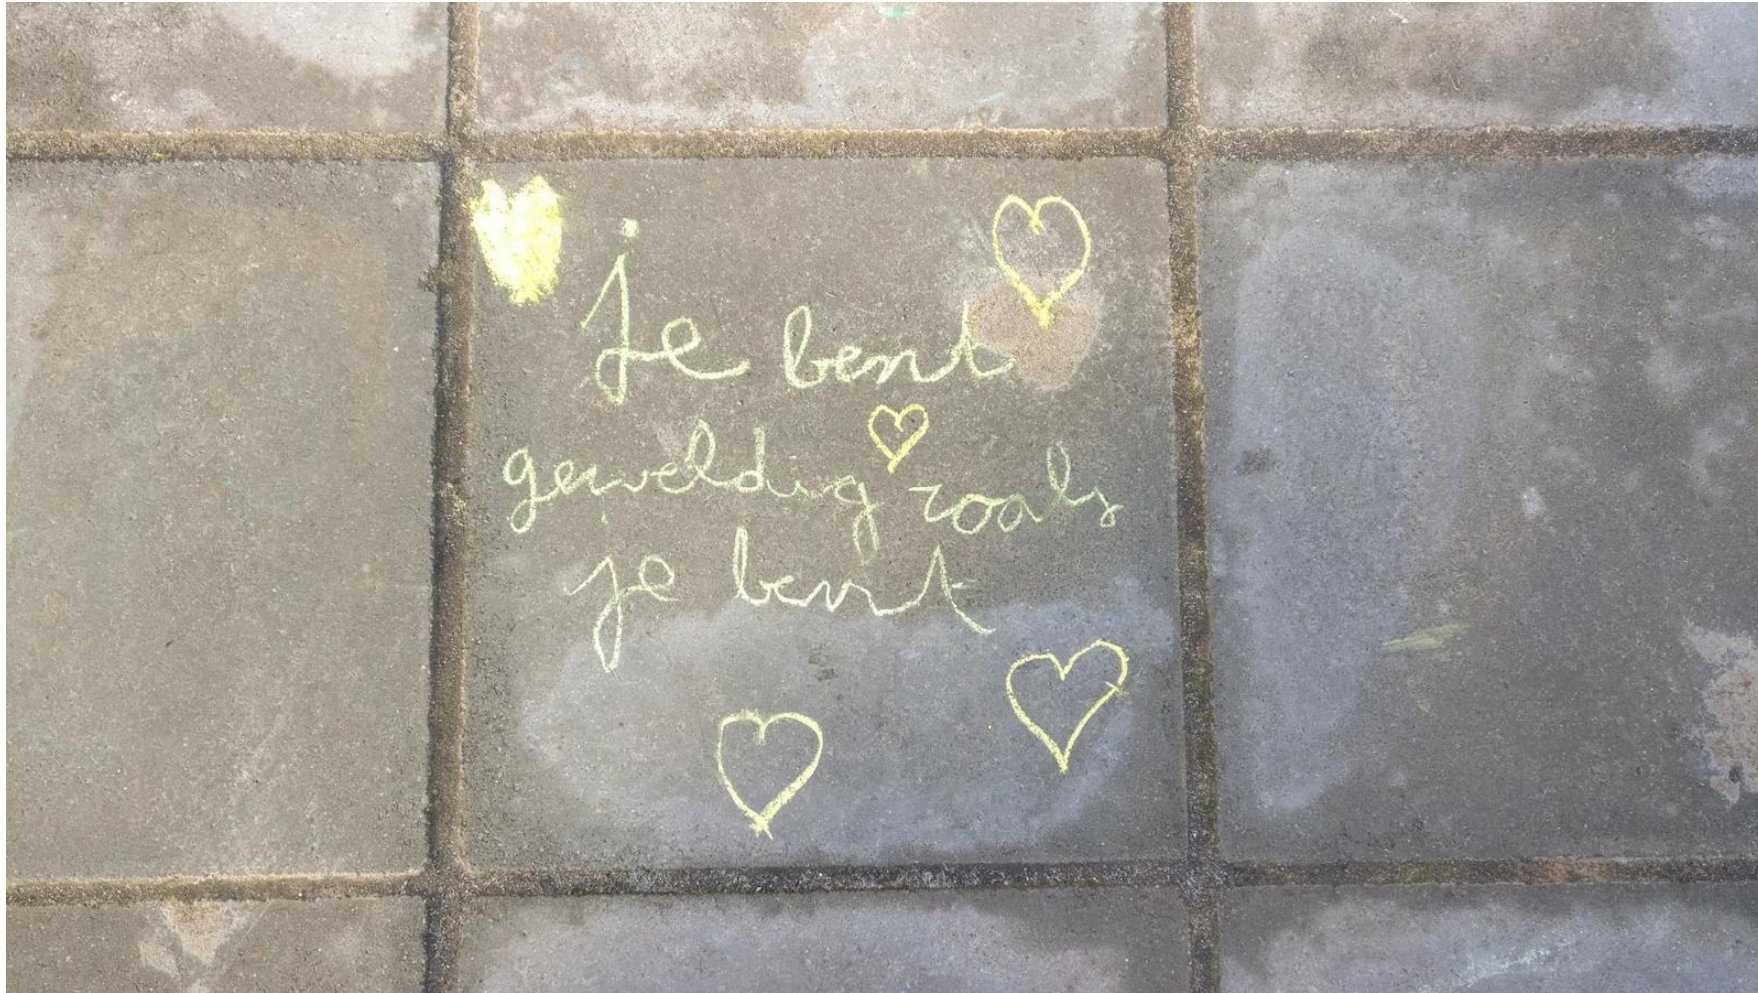 je bent
geweldig zoals
je bent